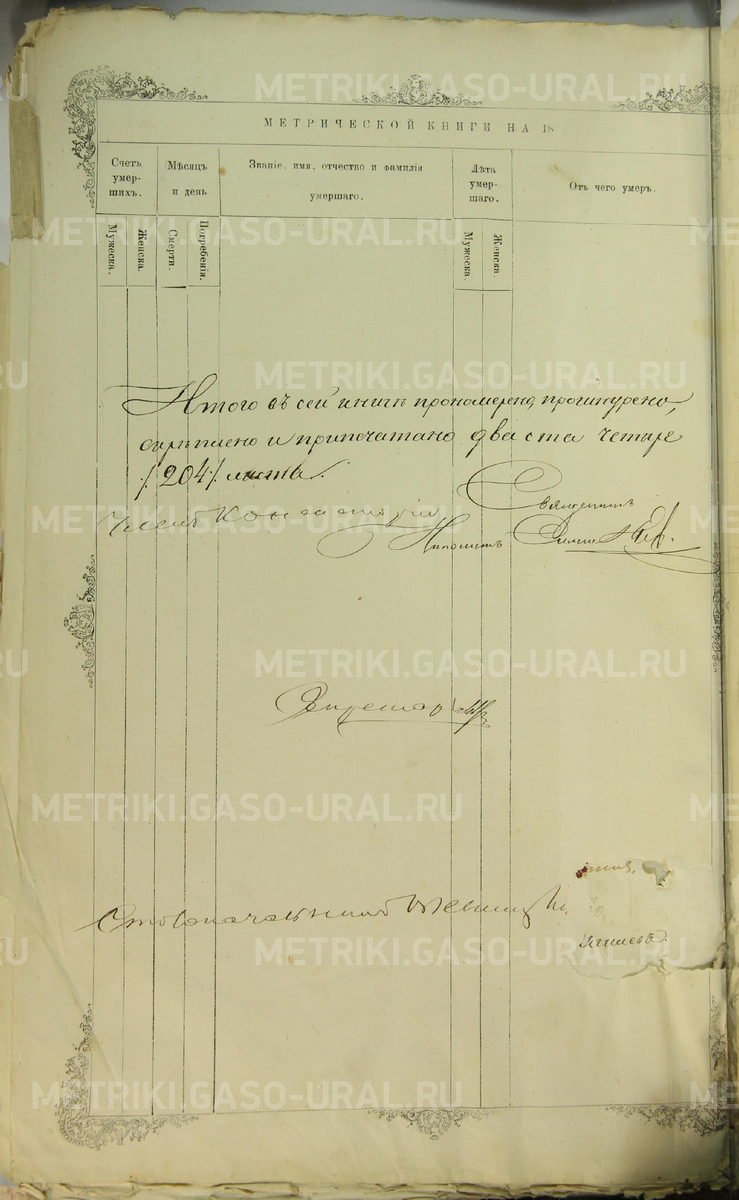 МЕТРИЧЕСКОЙ КНИГИ НА 18
Счетъ умер-шихъ.
Мѣсяцъ и день
Званіе, имя, отчество и фамилія умершаго.
Лѣта умер-шаго.
Отъ чего умеръ.
Мужеска.
Женска.
Смерти.
Погребенія.
Мужеска.
Женска.
Итого въ сей книгѣ прономерено, прошнурено,
скрѣплено и припечатано двѣста четыре
/:204:/ листа.
Членъ Консисторіи
Священникъ
Ипполитъ
Секретарь
Столоначальникъ
METRIKI.GASO-URAL.RU